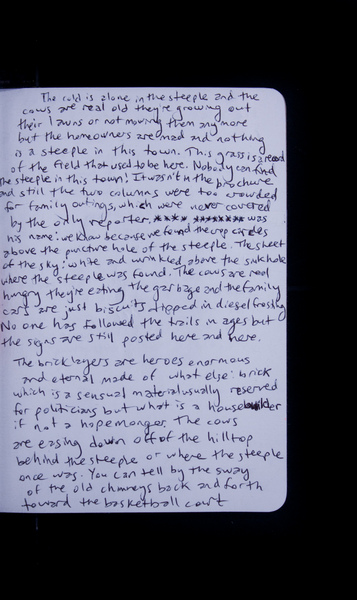 The cold is alone in the steeple and the
cows are real old they're growing out
their lawns or not mowing them any more
but the homeowners are mad and nothing
is a steeple in this town. This grass is a record
of the field that used to be here. Nobody can find
the steeple in this town! It wasn't in the brochure
and still the two columns were too crowded
for family outings, which were never covered
by the only reporter. **** ******** was
his name: we know because we found the crop circles
above the puncture hole of the steeple. The sheet
of the sky: white and wrinkled above the sinkhole
where the steeple was found. The cows are real
hungry they're eating the garbage and the family
cars are just biscuits dipped in diesel frosting
No one has followed the trails in ages but
the signs are still posted here and here.
The bricklayers are heroes enormous
and eternal made of what else: brick
which is a sensual material usually reserved
for politicians but what is a housebuilder
if not a hopemonger. The cows
are easing down off of the hilltop
behind the steeple or where the steeple
once was. You can tell by the sway
of the old chimneys back and forth
toward the basketball court